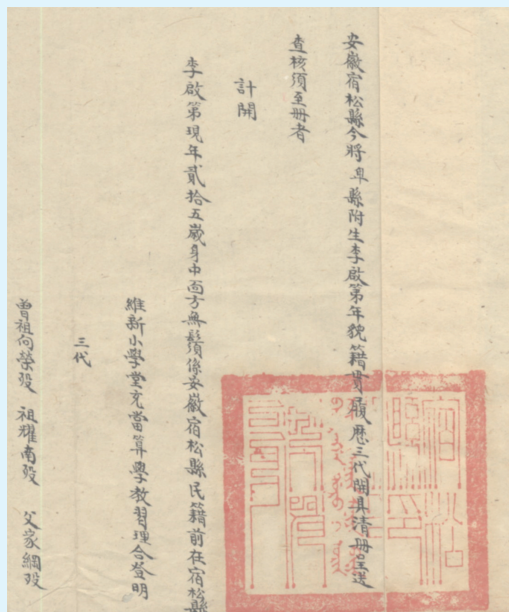 安徽宿松縣今將卑縣附生李啟第年貌籍貫履歷三代開具清冊呈送
查核須至冊者
計開
李啟第現年貳拾五歲身中面方無鬚係安徽宿松縣民籍前在宿松縣
維新小學堂充當算學教習理合登明
三代
曾祖向榮歿 祖耀南歿 父家綱歿